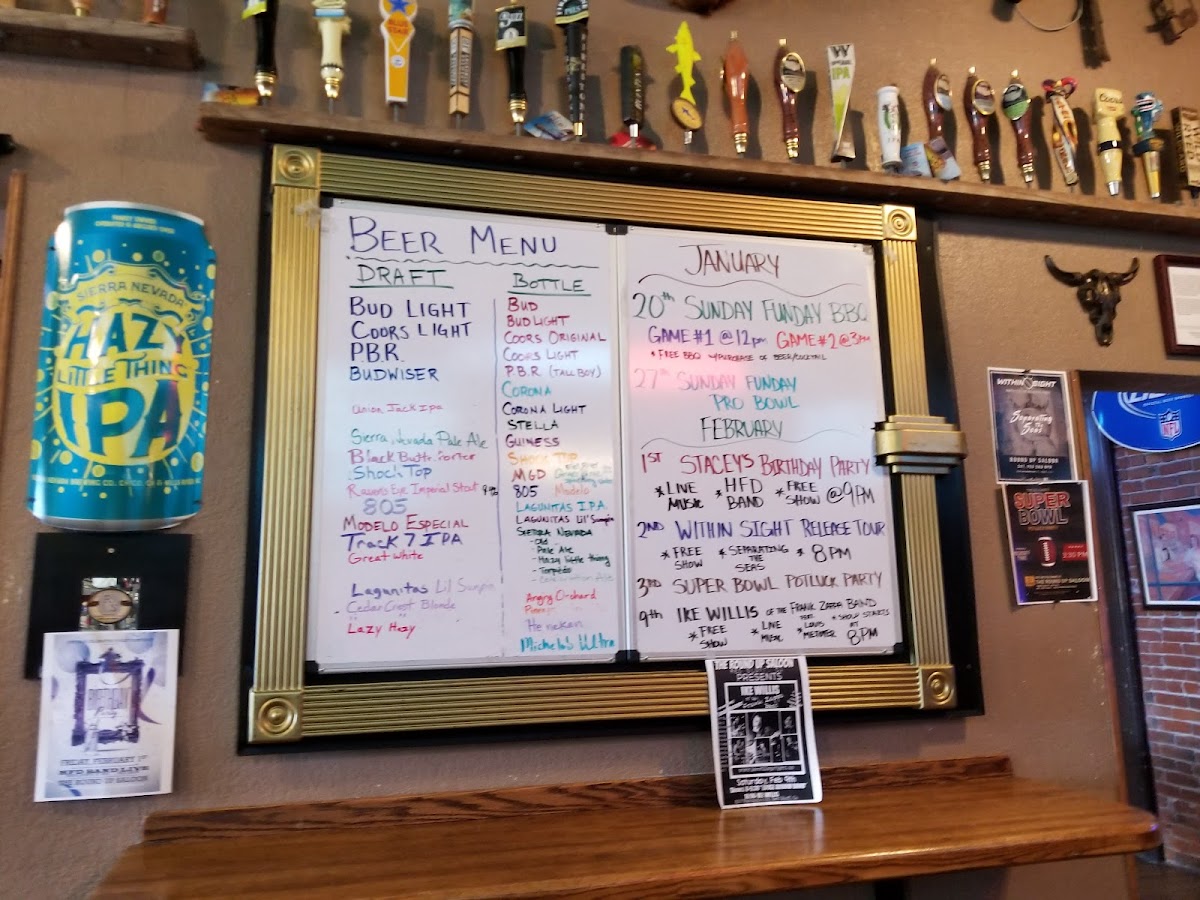 BLUE STAR
W
IPA
Coors
SIERRA NEVADA
HAZY
LITTLE THING
IPA
BEER MENU
DRAFT
BUD LIGHT
COORS LIGHT
P.B.R.
BUDWISER
Union Jack Ipa
Sierra Nevada Pale Ale
Black Butte Porter
Shock Top
Ravens Eye Imperial Stout
805
MODELO ESPECIAL
Track 7 IPA
Great white
Lagunitas Lil Sumpin
Cedar Crest Blonde
Lazy Hazy
BOTTLE
BUD
BUD LIGHT
COORS ORIGINAL
COORS LIGHT
P.B.R. (TALL BOY)
CORONA
CORONA LIGHT
STELLA
GUINESS
SHOCK TOP
MGD
805
Modelo
LAGUNITAS IPA
LAGUNITAS Lil' Sumpin
SIERRA NEVADA
- Pale Ale
- Hazy little thing
- Torpedo
Angry Orchard
Heineken
Michelob Ultra
JANUARY
20th SUNDAY FUNDAY BBQ
GAME #1 @ 12pm GAME #2 @ 3PM
* FREE BBQ W/PURCHASE OF BEER/COCKTAIL
27th SUNDAY FUNDAY
PRO BOWL
FEBRUARY
1ST STACEY'S BIRTHDAY PARTY
* LIVE MUSIC * HFD BAND * FREE SHOW @ 9PM
2ND WITHIN SIGHT RELEASE TOUR
* FREE SHOW * SEPARATING THE SEAS * 8PM
3RD SUPER BOWL POTLUCK PARTY
9th IKE WILLIS OF THE FRANK ZAPPA BAND
* FREE SHOW * LIVE MUSIC * SHOW STARTS AT 8PM
WITHIN SIGHT
Separating the Seas
ROUND UP SALOON
SUPER
BOWL
NFL
BIRTHDAY
FRIDAY, FEBRUARY 1ST
HFD BAND LIVE
THE ROUND UP SALOON
THE ROUND UP SALOON
PRESENTS
IKE WILLIS
Saturday, Feb 9th